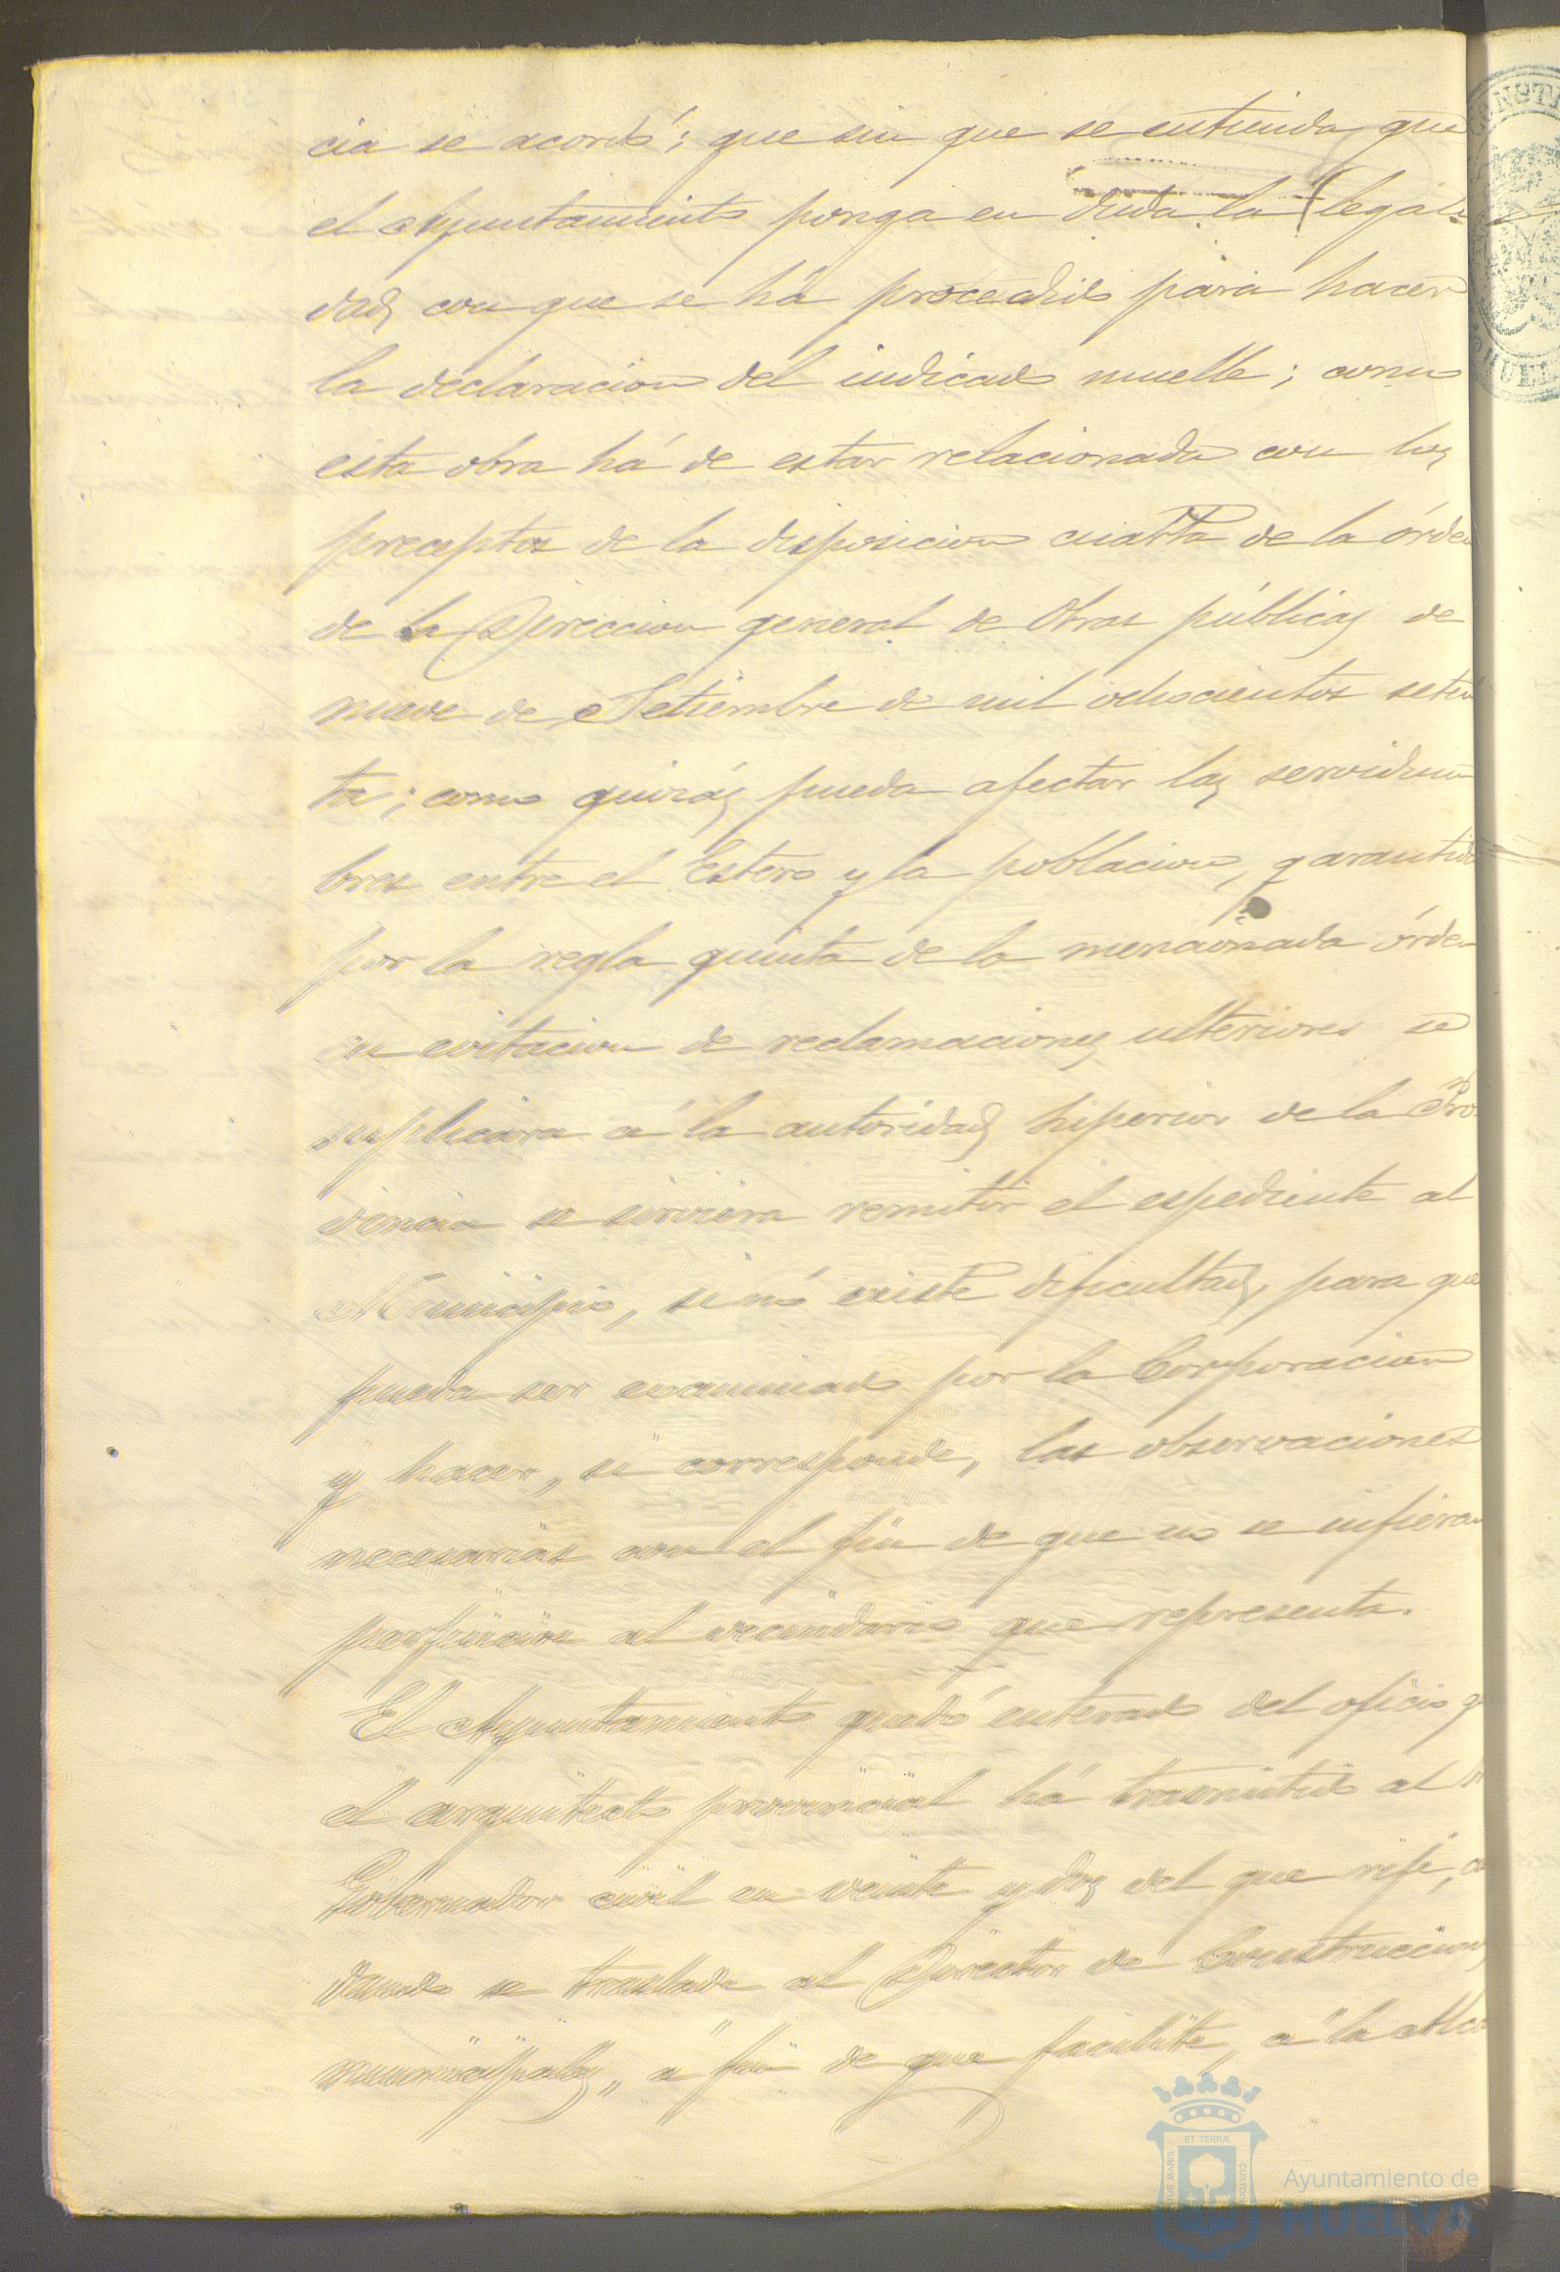 cia se acordó; que sin que se entienda que
el Ayuntamiento ponga en duda la legali
dad con que se há procedido para hacer
la declaracion del indicado muelle; como
esta obra há de estar relacionada con los
preceptos de la disposicion cuarta de la órden
de la Direccion general de Obras públicas de
nueve de Setiembre de mil ochocientos seten
ta; como quizás pueda afectar las servidum
bres entre el Estero y la poblacion, garantida
por la regla quinta de la mencionada órden
en evitacion de reclamaciones ulteriores se
suplicára á la autoridad superior de la Pro
vincia se sirviera remitir el espediente al
Municipio, si nó existe dificultad, para que
pueda ser examinado por la Corporacion
y hacer, si corresponde, las observaciones
necesarias con el fin de que no se infieran
perjuicios al vecindario que representa.
El Ayuntamiento quedó enterado del oficio q
el arquitecto provincial há trasmitido al
Gobernador civil en veinte y dos del que rije, a
dando se traslade al Director de Construccion
municipales, á fin de que facilite, á la Alca
CONSTI
HUEL
ET TERRÆ
PORTUS MARIS
CUSTODIA
Ayuntamiento de
HUELVA